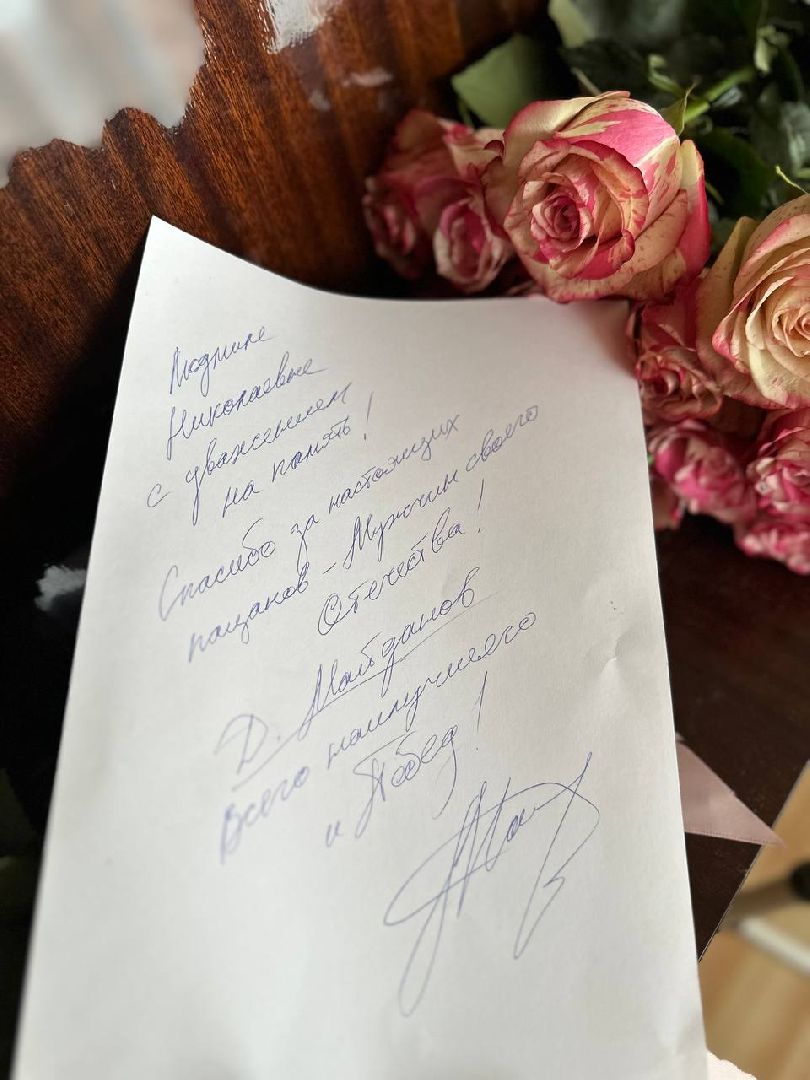 Людмиле
Николаевне
с уважением
на память!
Спасибо за настоящих
пацанов - Мужчин своего
Отечества!
Д. Майданов
Всего наилучшего
и Побед!